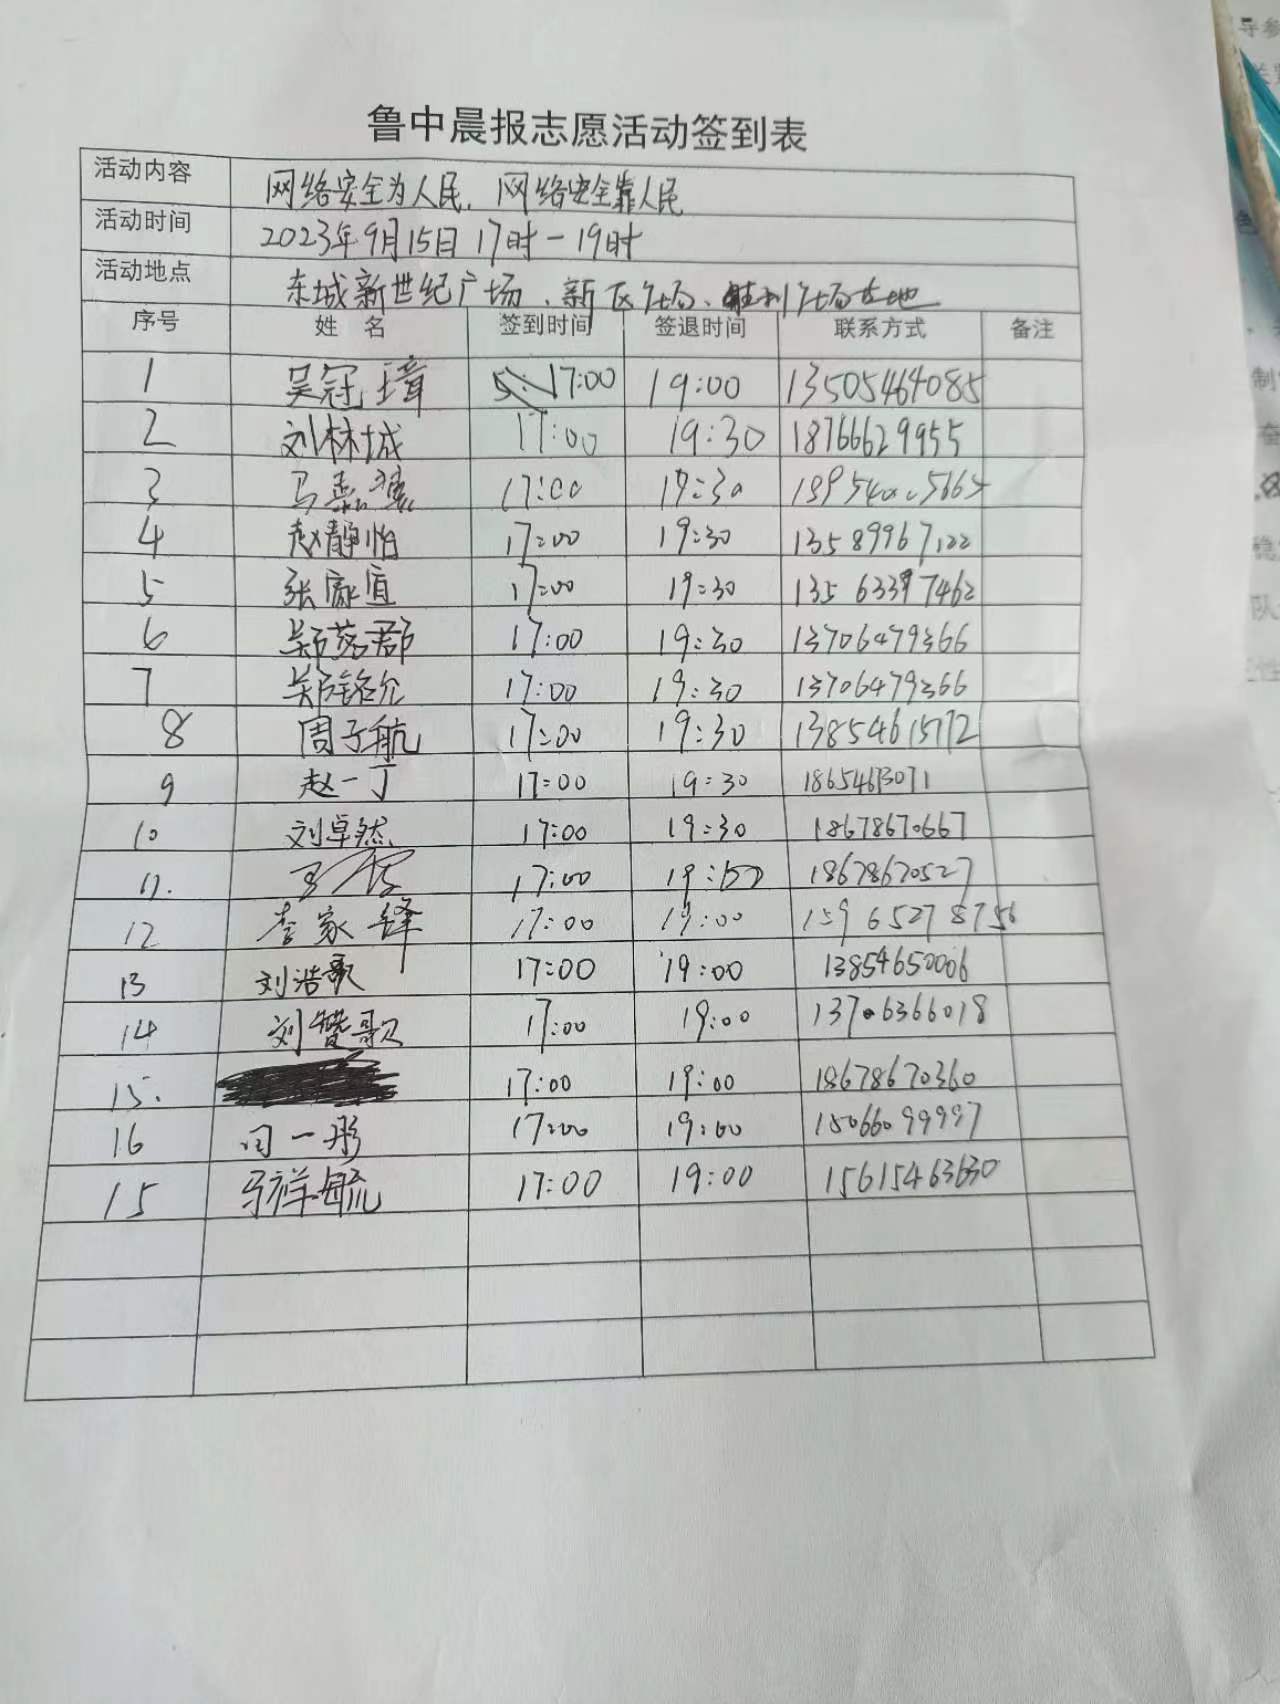 鲁中晨报志愿活动签到表
活动内容 网络安全为人民，网络安全靠人民
活动时间 2023年9月15日 17时-19时
活动地点 东城新世纪广场、新区广场、胜利广场各地
序号 姓名 签到时间 签退时间 联系方式 备注
1 吴冠璋 17:00 19:00 13505464085
2 刘林城 17:00 19:30 18766629955
3 17:00 19:30
4 赵静怡 17:00 19:30 13589967122
5 张家宜 17:00 19:30 13563397462
6 郑落郡 17:00 19:30 13706479366
7 郑铭允 17:00 19:30 13706479366
8 周子航 17:00 19:30 13854615772
9 赵一丁 17:00 19:30
10 刘卓然 17:00 19:30 18678670667
11. 17:00 18678670527
12 李家锋 17:00 19:00 15965278756
13 刘浩歌 17:00 19:00 13854650006
14 刘赞歌 17:00 19:00 13706366018
15. 17:00 19:00 18678670360
16 闫一彤 17:00 19:00 15066099997
15 马祥毓 17:00 19:00 15615463630